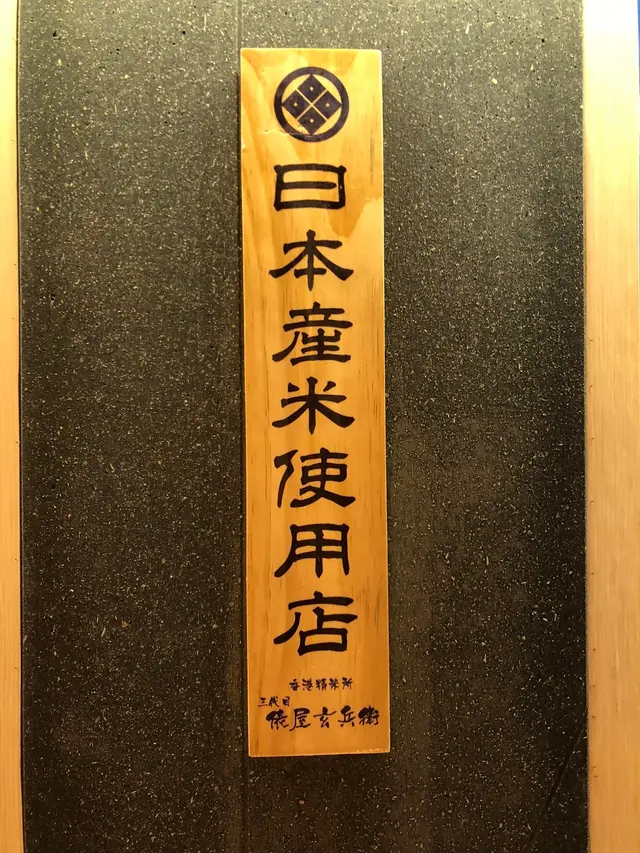 日本産米使用店
香港精米所
三代目
俵屋玄兵衛